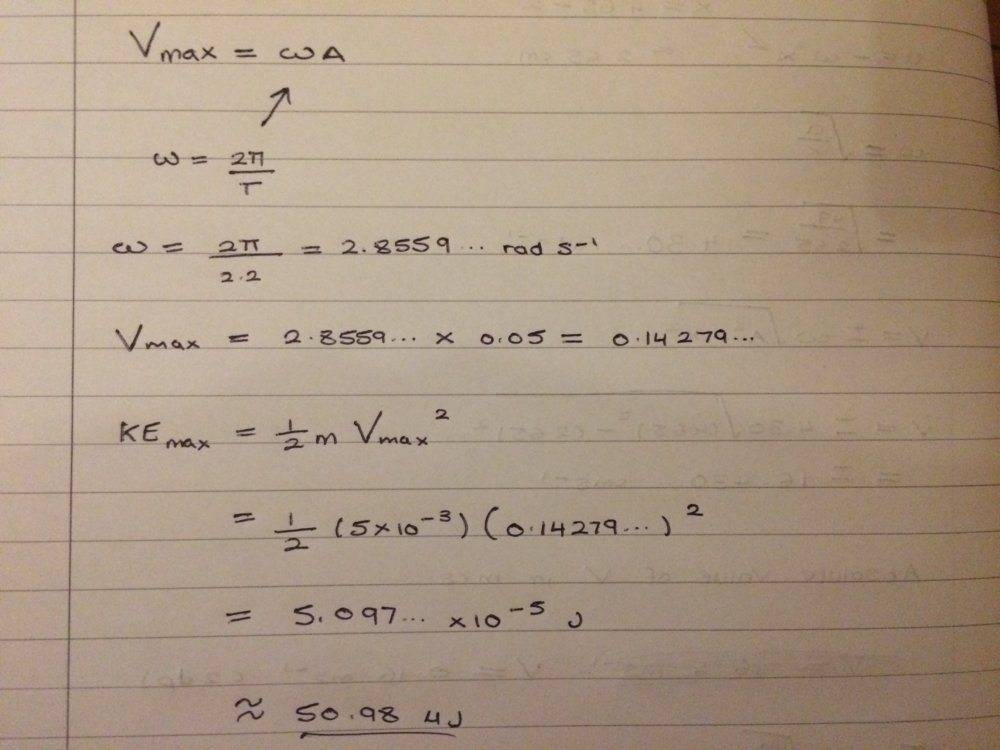 Vmax = ωA
↗
ω = 2π/T
ω = 2π/2.2 = 2.8559... rad s⁻¹
Vmax = 2.8559... × 0.05 = 0.14279...
KE max = 1/2 m Vmax²
= 1/2 (5×10⁻³) (0.14279...)²
= 5.097... ×10⁻⁵ J
≈ 50.98 μJ